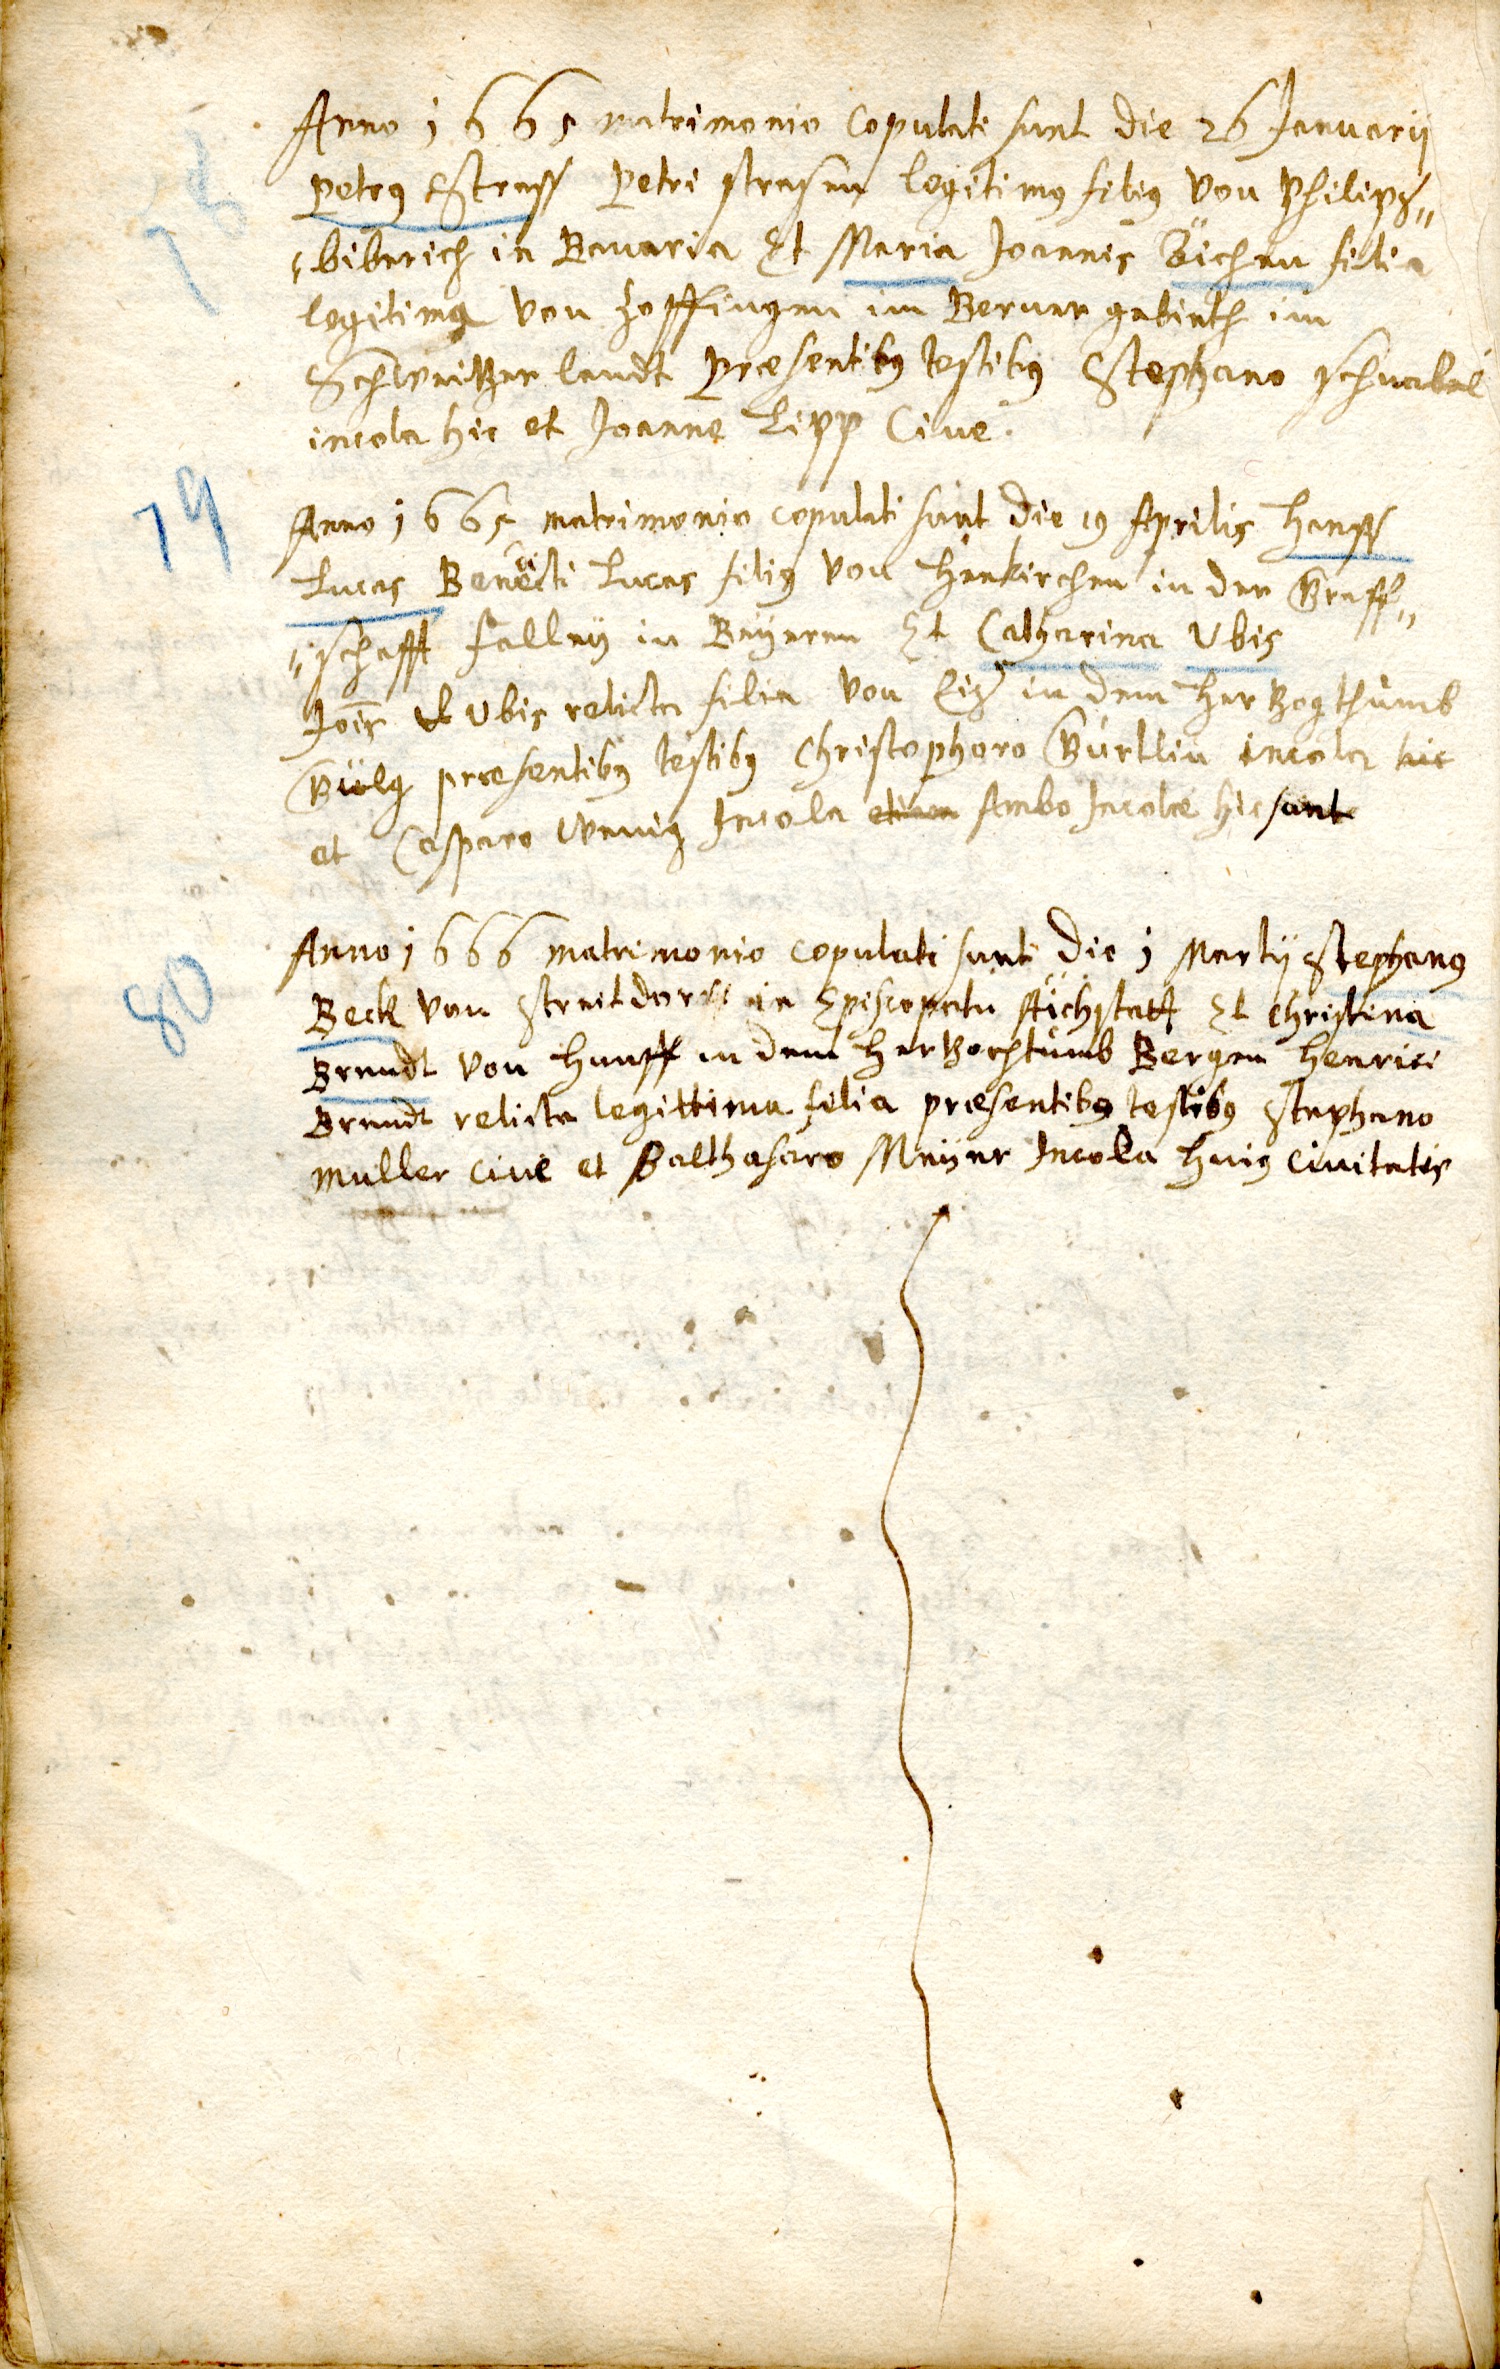 78
Anno 1665 matrimonio copulati sunt die 26 Januarij
Petrus Strass Petri strasen legitimus filius von Philips„
„biberich in Bavaria Et Maria Joannis Eichen filia
legitima von Zoffingen im Berner gebieth im
Schweitzer landt Præsentibus testibus Stephano schnabel
incola hic et Joanne Lipp Cive.
79
Anno 1665 matrimonio copulati sunt die 19 Aprilis Hanss
Lucas Benedicti Lucas filius von Henkirchen in der Graff„
„schafft Falleÿ in Beÿeren Et Catharina Ubis
Jois Ubis relicta filia von in dem Hertzogthumb
Gülg præsentibus testibus Christophoro incola hic
et Casparo Wenig Incola etiam Ambo Incolæ hic sunt
80
Anno 1666 matrimonio copulati sunt die 1 Martij Stephanus
Beck von Streitdorff in Episcopatu Aichstatt Et Christina
Brendt von Hunff in dem Hertzochtumb Bergen Henrici
Brendt relicta legittima filia præsentibus testibus Stephano
Muller cive et Balthasaro Meÿer Incola huius civitatis